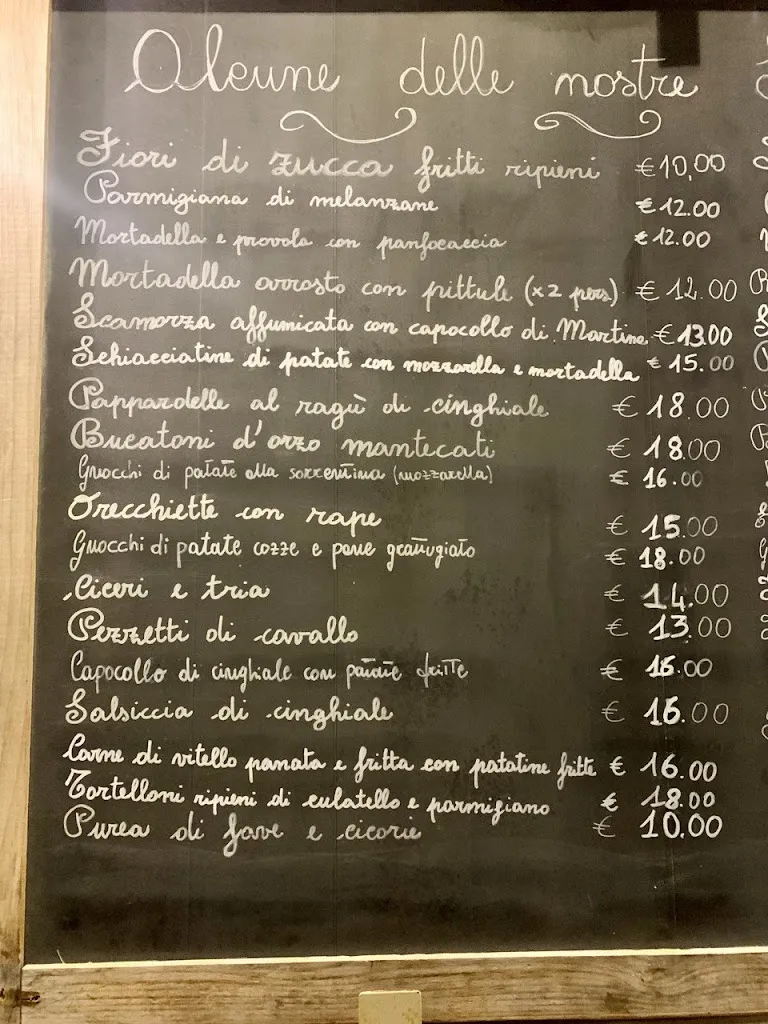 Alcune delle nostre
Fiori di zucca fritti ripieni €10,00
Parmigiana di melanzane €12.00
Mortadella e provola con panfocaccia €12.00
Mortadella arrosto con pittule (x2 pers) €12.00
Scamorza affumicata con capocollo di Martina €13.00
Schiacciatine di patate con mozzarella e mortadella €15.00
Pappardelle al ragù di cinghiale €18.00
Bucatoni d'orzo mantecati €18.00
Gnocchi di patate alla sorrentina (mozzarella) €16.00
Orecchiette con rape €15.00
Gnocchi di patate cozze e pane grattugiato €18.00
Ciceri e tria €14.00
Pezzetti di cavallo €13.00
Capocollo di cinghiale con patate fritte €16.00
Salsiccia di cinghiale €16.00
Carne di vitello panata e fritta con patatine fritte €16.00
Tortelloni ripieni di culatello e parmigiano €18.00
Purea di fave e cicorie €10.00